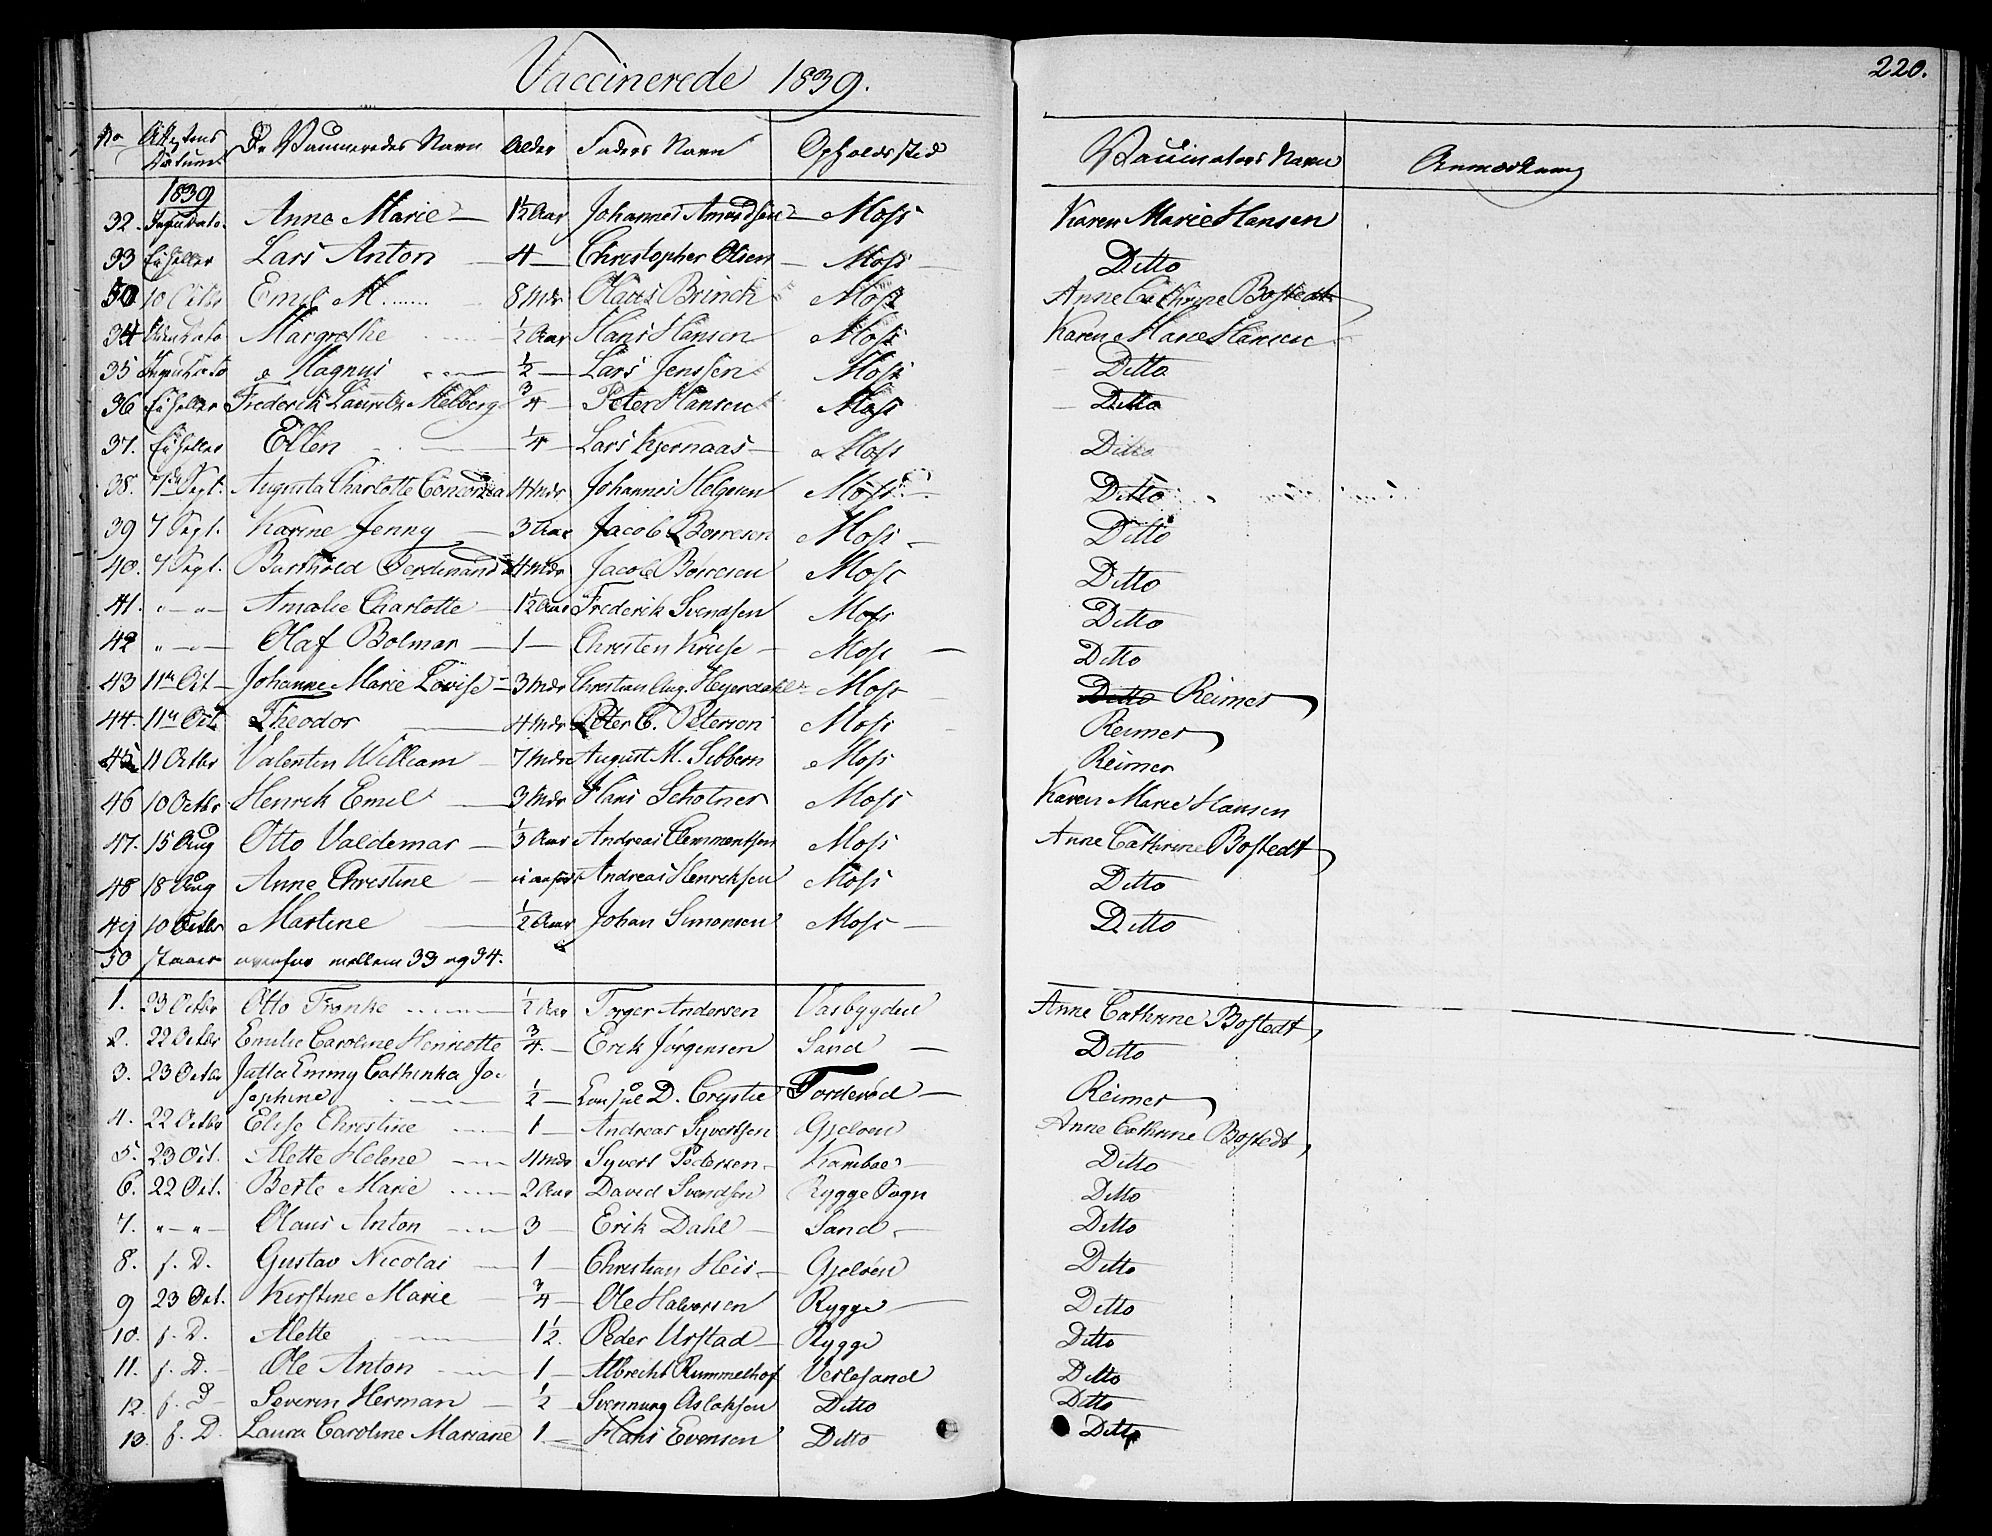 Vaccinerede 1839.
220.
No Attestens Datum De Vaccineredes Navn Alder Faders Navn Opholdssted Vaccinateurs Navn Anmærkning
1839
32. Anne Marie 1½ Aar Johannes Amundsen Moss Karen Marie Hansen
33 Lars Anton 4 Christopher Olsen Moss Ditto
50 10 Octbr Emil M. 8 Mdr Olaus Brinch Moss Anne Cathrine Bostedt
34 Margrethe ½ Aar Hans Hansen Moss Karen Marie Hansen
35 Magnus ½ Lars Jenssen Moss Ditto
36 Frederik Lauritz Melberg ¾ Peter Hansen Moss Ditto
37. Ellen ¼ Lars Kjernaas Moss Ditto
38. 7de Sept. Augusta Charlotte Concordia 4 Mdr Johannes Helgesen Moss Ditto
39 7 Sept. Karine Jenny 3 Aar Jacob Borresen Moss Ditto
40. 7 Sept. Barthold Ferdinand 4 Mdr Jacob Borresen Moss Ditto
41. " - " Amalie Charlotte 1½ Aar Frederik Svendsen Moss Ditto
42 " - " Olaf Bolmar 1 Christen Kruse Moss Ditto
43 11te Oct Johanne Marie Lovise 3 Mdr Christian Aug. Heyerdahl Moss Ditto Reimer
44. 11te Oct. Theodor 4 Mdr Peter C. Petersen Moss Reimer
45 11 Octbr Valentin William 7 Mdr August M. Sibbern Moss Reimer
46 10 Octbr Henrik Emil 3 Mdr Hans Scholner Moss Karen Marie Hansen
47. 15 Aug Otto Valdemar ⅓ Aar Andreas Clemmentsen Moss Anne Cathrine Bostedt
48 18 Aug Anne Christine Andreas Henriksen Moss Ditto
49 10 Octbr Martine ½ Aar Johan Simonsen Moss Ditto
50 staaer ovenfor mellem 33 og 34.
1. 23 Octbr Otto Franke ½ Aar Torger Andersen Vasbygden Anne Cathrine Bostedt
2. 22 Octbr Emilie Caroline Henriette ¾ Erik Jørgensen Sand Ditto
3. 23 Octbr Jutta Emmy Cathinka Jo-
sephine ½ Consul D. Chrystie Torderød Reimer
4. 22 Octbr Elise Christine 1 Andreas Syvertsen Gjeløen Anne Cathrine Bostedt
5. 23 Oct. Alette Helene 4 Mdr Syvert Pedersen Kamboe Ditto
6. 22 Oct. Berte Marie 2 Aar David Svendsen Rygge Sogn Ditto
7. " - " Olaus Anton 3 Erik Dahl Sand Ditto
8. f. D. Gustav Nicolai 1 Christian Heis Gjeløen Ditto
9 23 Oct. Kirstine Marie ¾ Ole Halvorsen Rygge Ditto
10. f. D. Alette 1½. Peder Urstad Rygge Ditto
11. f. D. Ole Anton 1 Albrecht Rummelhof Verlesand Ditto
12. f. D Severin Herman ½ Svennung Aslaksen Ditto Ditto
13. f. D. Laura Caroline Mariane 1 Hans Evensen Ditto Ditto